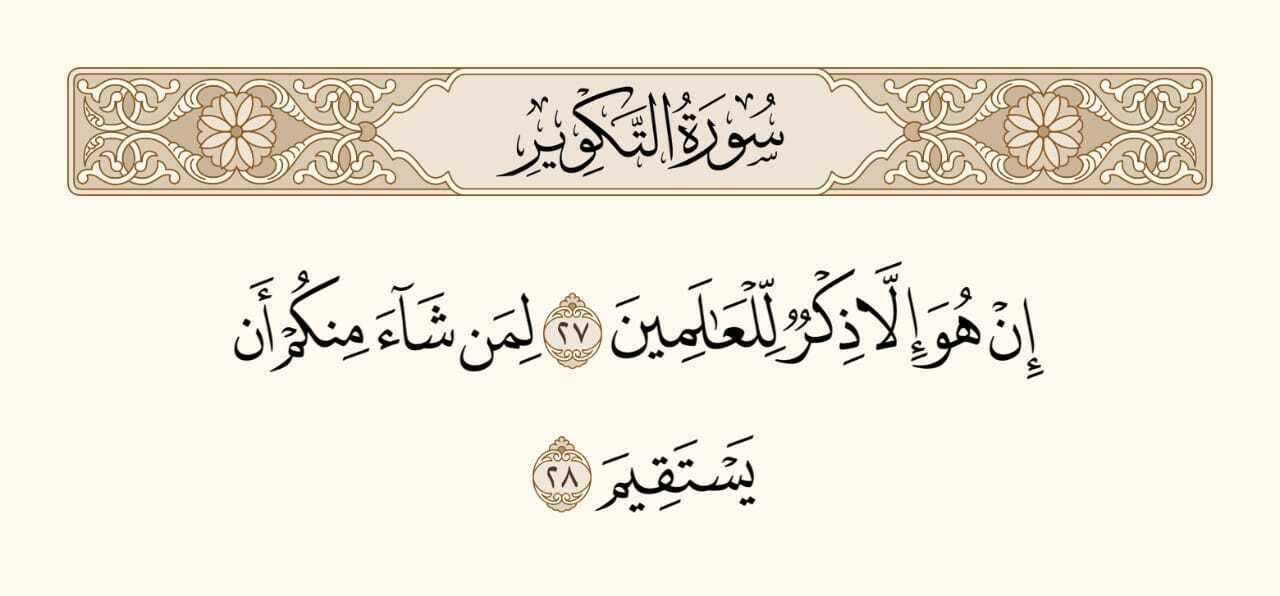 سُورَةُ التَّكْوِيرِ
إِنْ هُوَ إِلَّا ذِكْرٌ لِّلْعَـٰلَمِينَ ٢٧ لِمَن شَآءَ مِنكُمْ أَن
يَسْتَقِيمَ ٢٨